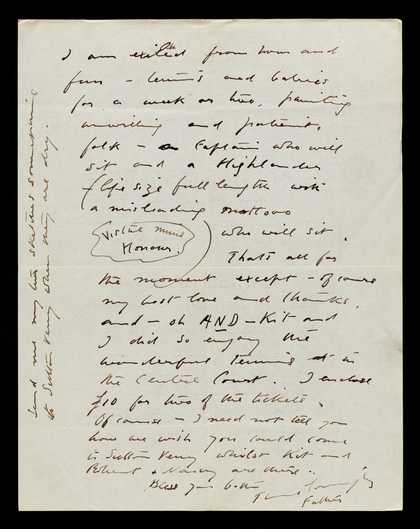 I am exiled from home and
fun – tennis and babies
for a week or two, painting
unwilling and patient
folk – a Captain who will
sit and a Highlander
life size full length with
a misleading motto
who will sit.
Virtue mine
Honour.
That's all for
the moment except – of course
my best love and thanks,
and – oh AND – Kit and
I did so enjoy the
wonderful tennis in
the Centre Court. I enclose
£10 for two of the tickets.
Of course – I need not tell you
how we wish you could come
to Sutton Veny whilst Kit and
and Nancy are there.
Bless you both
Father
Send me my two sketches sometime
to Sutton Veny when they are dry.